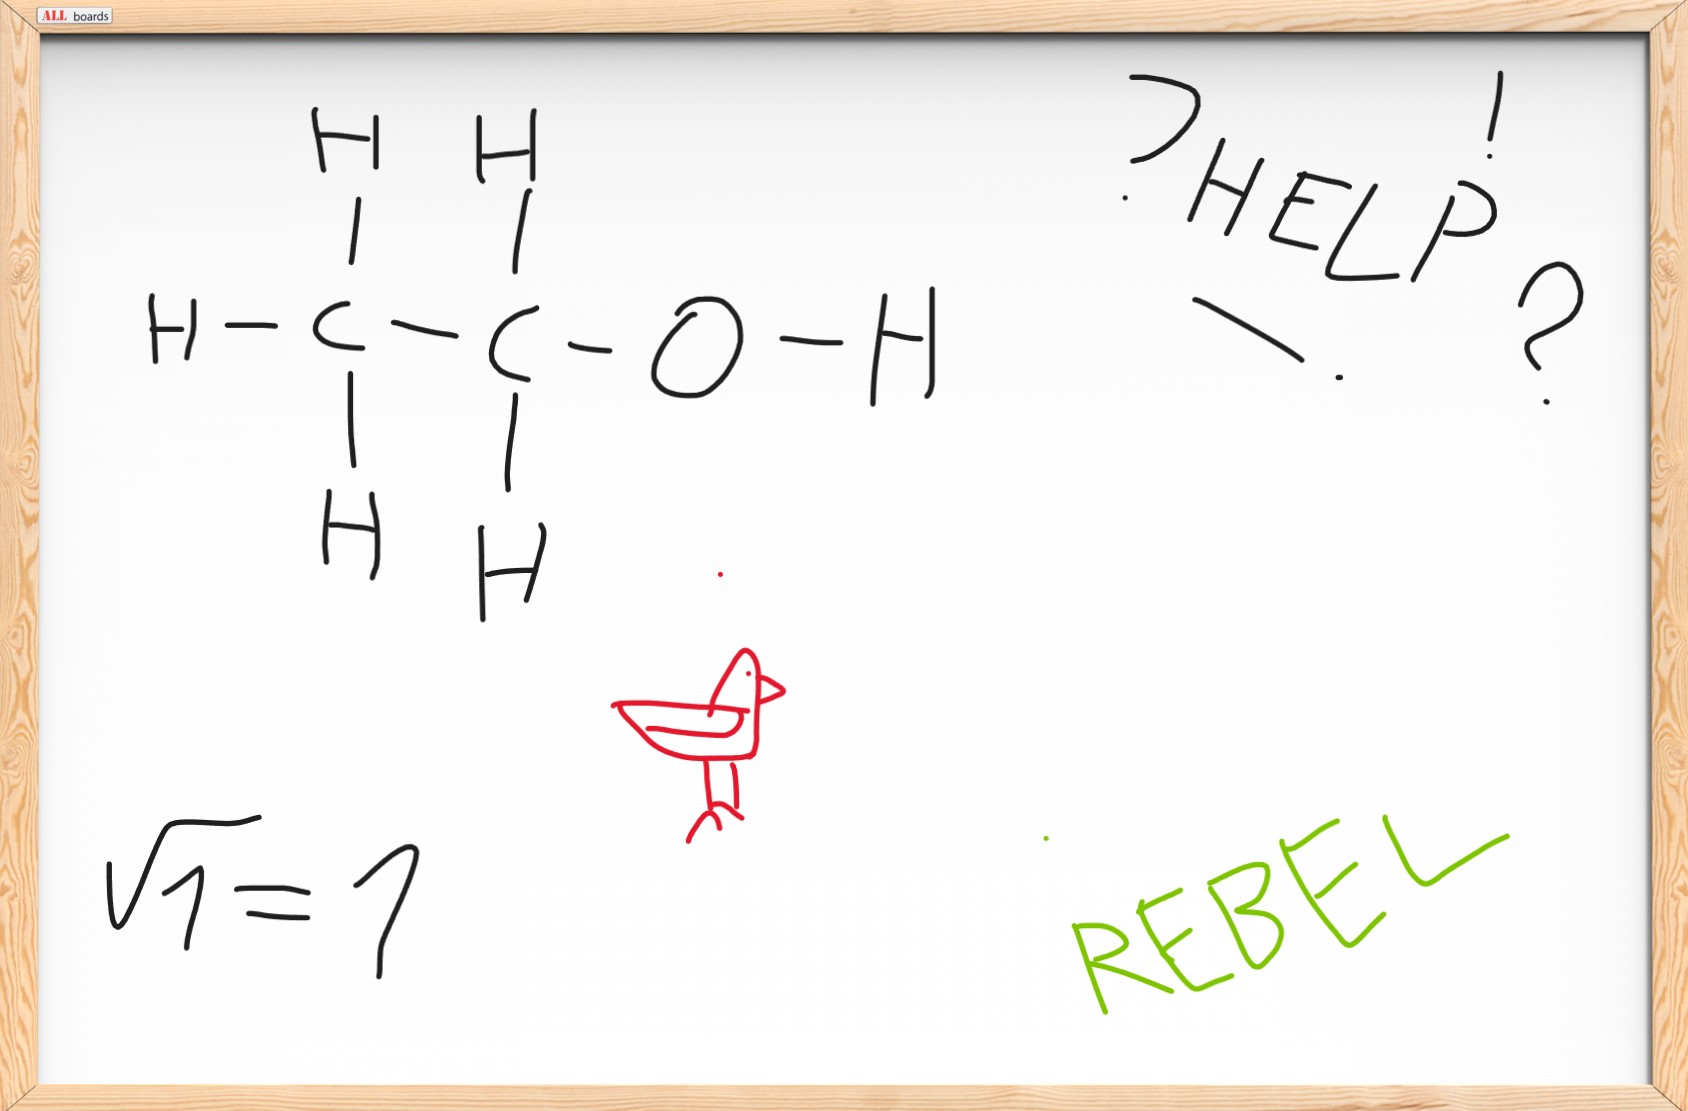 ALL boards
H H
H - C - C - O - H
H H
? HELP !
! ?
√1 = 1
REBEL